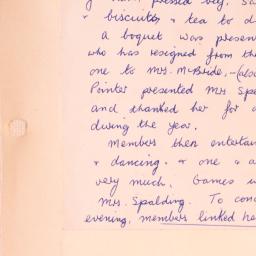 pressed
& biscuits & tea to d
a boquet was presen
who has resigned from th
one to Mrs. McBride, -(als
Pointer presented Mrs Spa
and thanked her for a
during the year.
Members then entertain
& dancing. & one & a
very much. Games w
Mrs. Spalding. To conc
evening, members linked ha